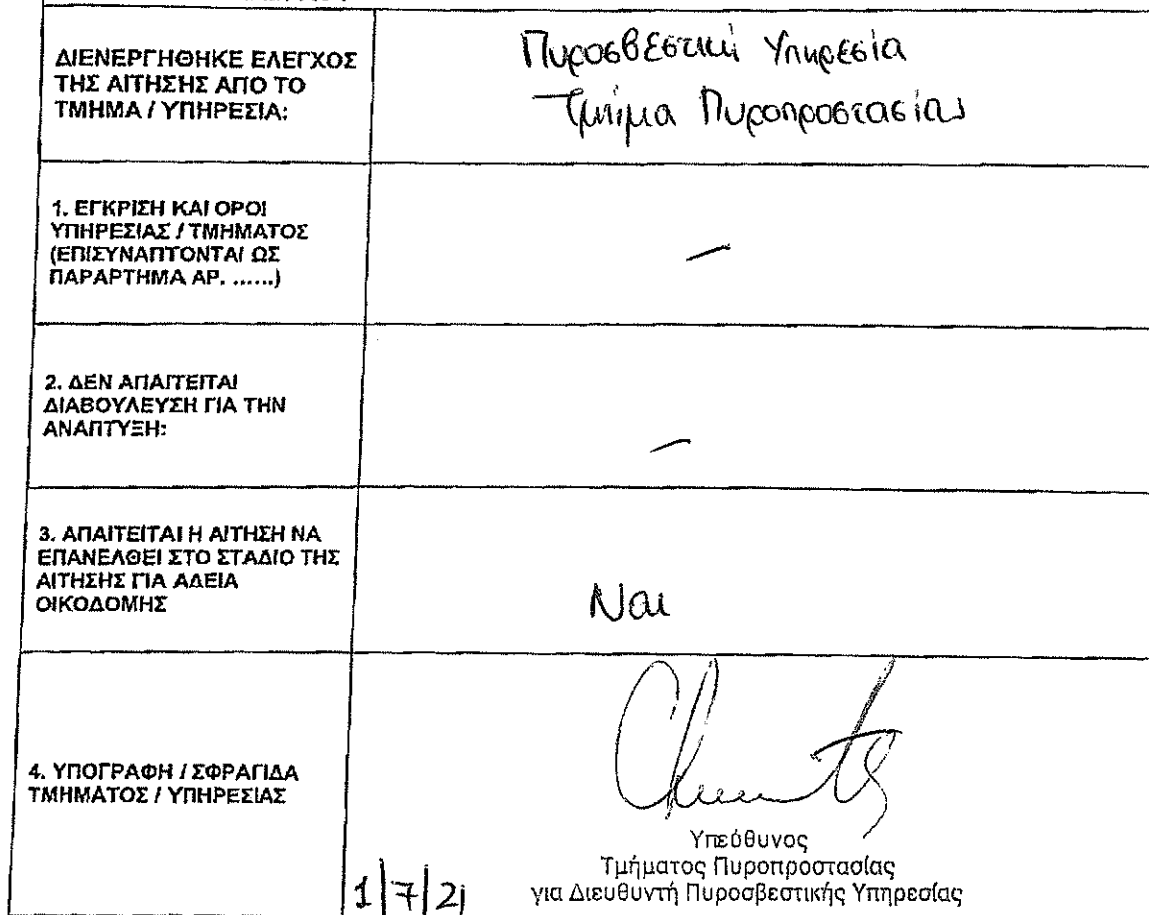 ΔΙΕΝΕΡΓΗΘΗΚΕ ΕΛΕΓΧΟΣ
ΤΗΣ ΑΙΤΗΣΗΣ ΑΠΟ ΤΟ
ΤΜΗΜΑ / ΥΠΗΡΕΣΙΑ:
Πυροσβεστική Υπηρεσία
Τμήμα Πυροπροστασίας
1. ΕΓΚΡΙΣΗ ΚΑΙ ΟΡΟΙ
ΥΠΗΡΕΣΙΑΣ / ΤΜΗΜΑΤΟΣ
(ΕΠΙΣΥΝΑΠΤΟΝΤΑΙ ΩΣ
ΠΑΡΑΡΤΗΜΑ ΑΡ. ......)
—
2. ΔΕΝ ΑΠΑΙΤΕΙΤΑΙ
ΔΙΑΒΟΥΛΕΥΣΗ ΓΙΑ ΤΗΝ
ΑΝΑΠΤΥΞΗ:
—
3. ΑΠΑΙΤΕΙΤΑΙ Η ΑΙΤΗΣΗ ΝΑ
ΕΠΑΝΕΛΘΕΙ ΣΤΟ ΣΤΑΔΙΟ ΤΗΣ
ΑΙΤΗΣΗΣ ΓΙΑ ΑΔΕΙΑ
ΟΙΚΟΔΟΜΗΣ
Ναι
4. ΥΠΟΓΡΑΦΗ / ΣΦΡΑΓΙΔΑ
ΤΜΗΜΑΤΟΣ / ΥΠΗΡΕΣΙΑΣ
Υπεύθυνος
Τμήματος Πυροπροστασίας
για Διευθυντή Πυροσβεστικής Υπηρεσίας
1/7/21